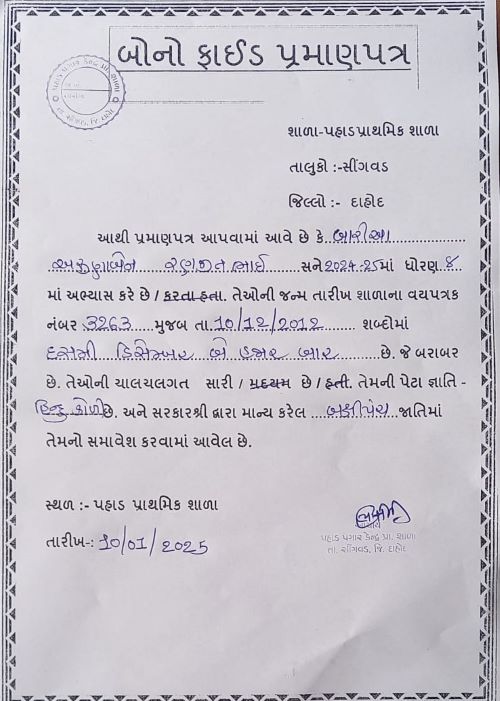 બોનો ફાઈડ પ્રમાણપત્ર
શાળા-પહાડ પ્રાથમિક શાળા
તાલુકો :-સીંગવડ
જિલ્લો :- દાહોદ
આથી પ્રમાણપત્ર આપવામાં આવે છે કે. બારીઆ
અરૂણાબેન રણજીતભાઈ સને 2024-25માં ધોરણ 8
માં અભ્યાસ કરે છે / કરતા હતા. તેઓની જન્મ તારીખ શાળાના વયપત્રક
નંબર 3263 મુજબ તા. 10/12/2012 શબ્દોમાં
દસમી ડિસેમ્બર બે હજાર બાર છે. જે બરાબર
છે. તેઓની ચાલચલગત સારી / મધ્યમ છે / હતી. તેમની પેટા જ્ઞાતિ -
હિન્દુ કોળી છે. અને સરકારશ્રી દ્વારા માન્ય કરેલ બક્ષીપંચ જાતિમાં
તેમનો સમાવેશ કરવામાં આવેલ છે.
સ્થળ :- પહાડ પ્રાથમિક શાળા
તારીખ-: 10/01/2025
આચાર્ય
પહાડ પગાર કેન્દ્ર પ્રા. શાળા
તા. સીંગવડ, જિ. દાહોદ